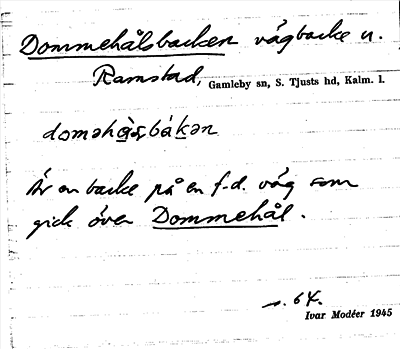 Dommehålsbacken vägbacke n.
Ramstad, Gamleby sn, S. Tjusts hd, Kalm. l.
Är en backe på en f.d. väg som
gick över Dommehål.
s. 64.
Ivar Modéer 1945